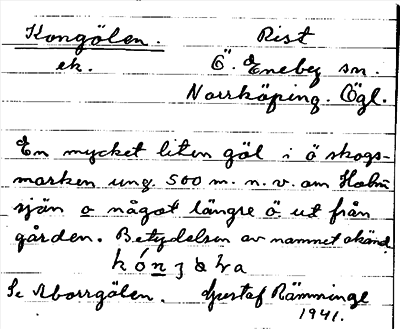 Kongölen. Rist
ek. Ö. Eneby sn.
Norrköping. Ögl.
En mycket liten göl i ö skogs-
marken ung. 500 m. n. v. om Holm
sjön o något längre ö ut från
gården. Betydelsen av namnet okänd.
Se Aborrgölen. Gustaf Rämminge
1941.